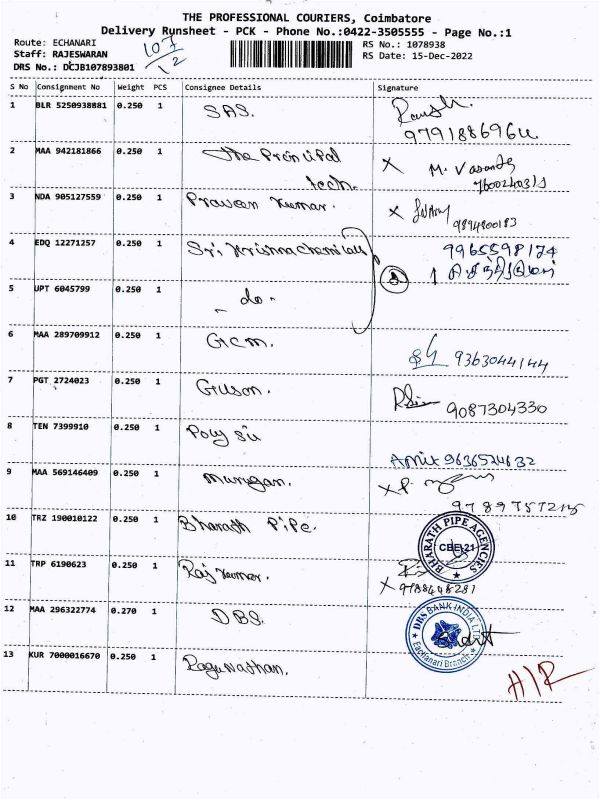 THE PROFESSIONAL COURIERS, Coimbatore
Delivery Runsheet - PCK - Phone No.:0422-3505555 - Page No.:1
Route: ECHANARI
Staff: RAJESWARAN
DRS No.: DCJB107893801
107/12
RS No.: 1078938
RS Date: 15-Dec-2022
S No Consignment No Weight PCS Consignee Details Signature
1 BLR 5250938881 0.250 1 SAS.
2 MAA 942181866 0.250 1 The Principal M. Vasantha
Tech. 7600240313
3 NDA 905127559 0.250 1 Pravean Kumar. 9894800183
4 EDQ 12271257 0.250 1 Sri Krishna Chemicals 9965598174
5 UPT 6045799 0.250 1 - do -
6 MAA 289709912 0.250 1 G.C.M. 9363044144
7 PGT 2724023 0.250 1 Guson. 9087304330
8 TEN 7399910 0.250 1 Poly Sil Amit 9636524632
9 MAA 569146409 0.250 1 Murugan.
10 TRZ 190010122 0.250 1 Bharath Pipe. BHARATH PIPE AGENCIES CBE-21
11 TRP 6190623 0.250 1 Raj Kumar. 9788448281
12 MAA 296322774 0.270 1 DBS. DBS BANK INDIA LTD Eachanari Branch
13 KUR 7000016670 0.250 1 Ragunathan. H/R